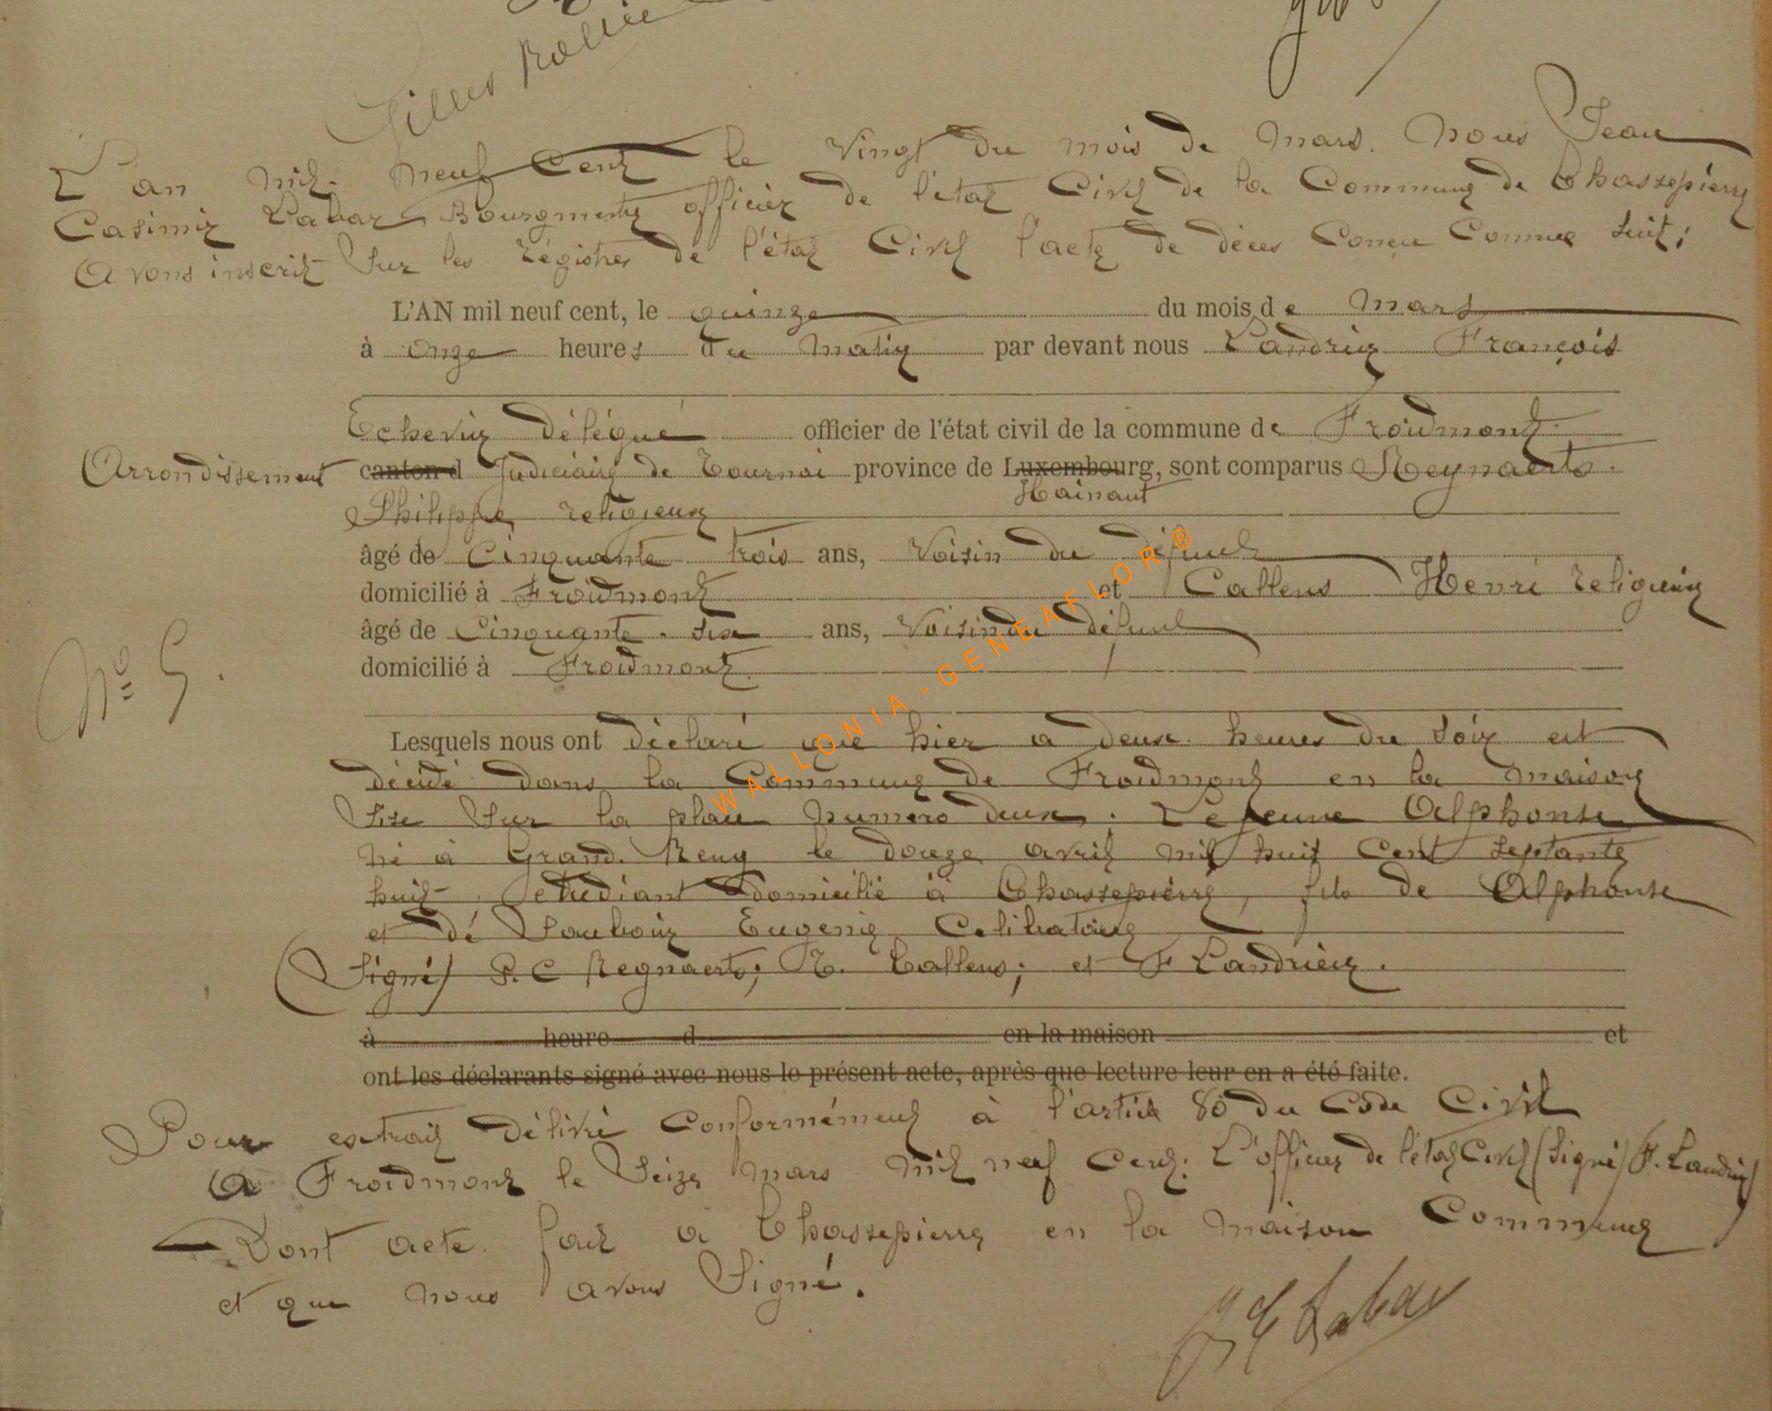 Gilles
L'an mil neuf Cent le Vingt du mois de Mars. Nous Jean
Casimir Labar Bourgmestre officier de l'état Civil de la Commune de Chassepierre
Avons inscrit Sur les régistres de l'état Civil l'acte de décès Conçu Comme Suit;
L'AN mil neuf cent, le quinze du mois de Mars
à onze heures du Matin par devant nous Landrieu François
Echevin délégué officier de l'état civil de la commune de Froidmont.
Arrondissement canton d Judiciaire de Tournai province de Luxembourg, sont comparus Reynaerts.
Hainaut
Philippe, religieux
âgé de Cinquante trois ans, Voisin du défunt
domicilié à Froidmont et Callens Henri religieux
âgé de Cinquante. six ans, Voisin du défunt
domicilié à Froidmont.
N° 5.
Lesquels nous ont déclaré que hier à deux heures du Soir est
décédé dans la Commune de Froidmont en la maison
Sise Sur la place numéro deux. Lejeune Alphonse
né à Grand. Reng le douze avril mil huit Cent Septante
huit, etudiant domicilié à Chassepierre, fils de Alphonse
et dé Eugenie Célibataire
(Signé) P. C Reynaerts; H. Callens; et F Landrieu.
à heure d en la maison et
ont les déclarants signé avec nous le présent acte, après que lecture leur en a été faite.
Pour extrait délivré Conformément à l'article 80 du Code Civil
A Froidmont le Seize Mars Mil neuf Cent. L'officier de l'état Civil (Signé) F. Landrieu
Dont acte. fait à Chassepierre en la maison Commune
et que nous avons Signé.
J C Labar
WALLONIA - GENEAFLOR®